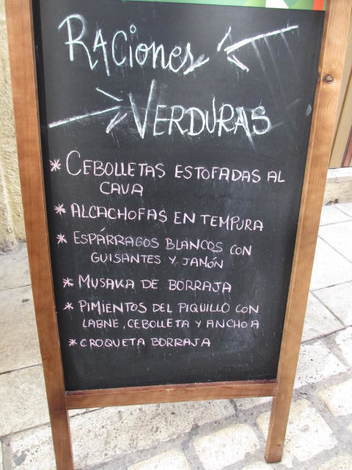 RACIONES
VERDURAS
* CEBOLLETAS ESTOFADAS AL
CAVA
* ALCACHOFAS EN TEMPURA
* ESPÁRRAGOS BLANCOS CON
GUISANTES Y JAMÓN
* MUSAKA DE BORRAJA
* PIMIENTOS DEL PIQUILLO CON
LABNE, CEBOLLETA Y ANCHOA
* CROQUETA BORRAJA